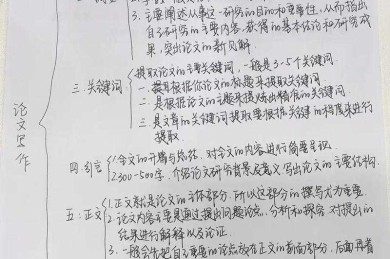 3. 主要阐述从事这一研究的目的和重要性,从而指出
自己研究的主要内容,获得的基本结论和研究成
果,突出论文的新见解
三 关键词
提取论文的主要关键词,一般是3-5个关键词
一. 提取根据你论文的标题来提取关键词.
二. 是根据论文的主题来提炼出精准的关键词
三 是文章的关键词提取要根据关键词的程度来进行
提取
论文写作
四. 引言
1. 全文的开篇与总起,对全文的内容进行简要导识
2. 300-500字,介绍论文研究背景及意义,写出论文的主要结构.
五: 正文
1. 正文就是论文的主体部分,所以这部分的撰写尤为重要.
2. 论文内容主要是通过提出问题论点,分析和探究,对提出的
结果进行解释以及论证.
3. 一般会先把自己重要的论点放在正文的前面部分,后面再者